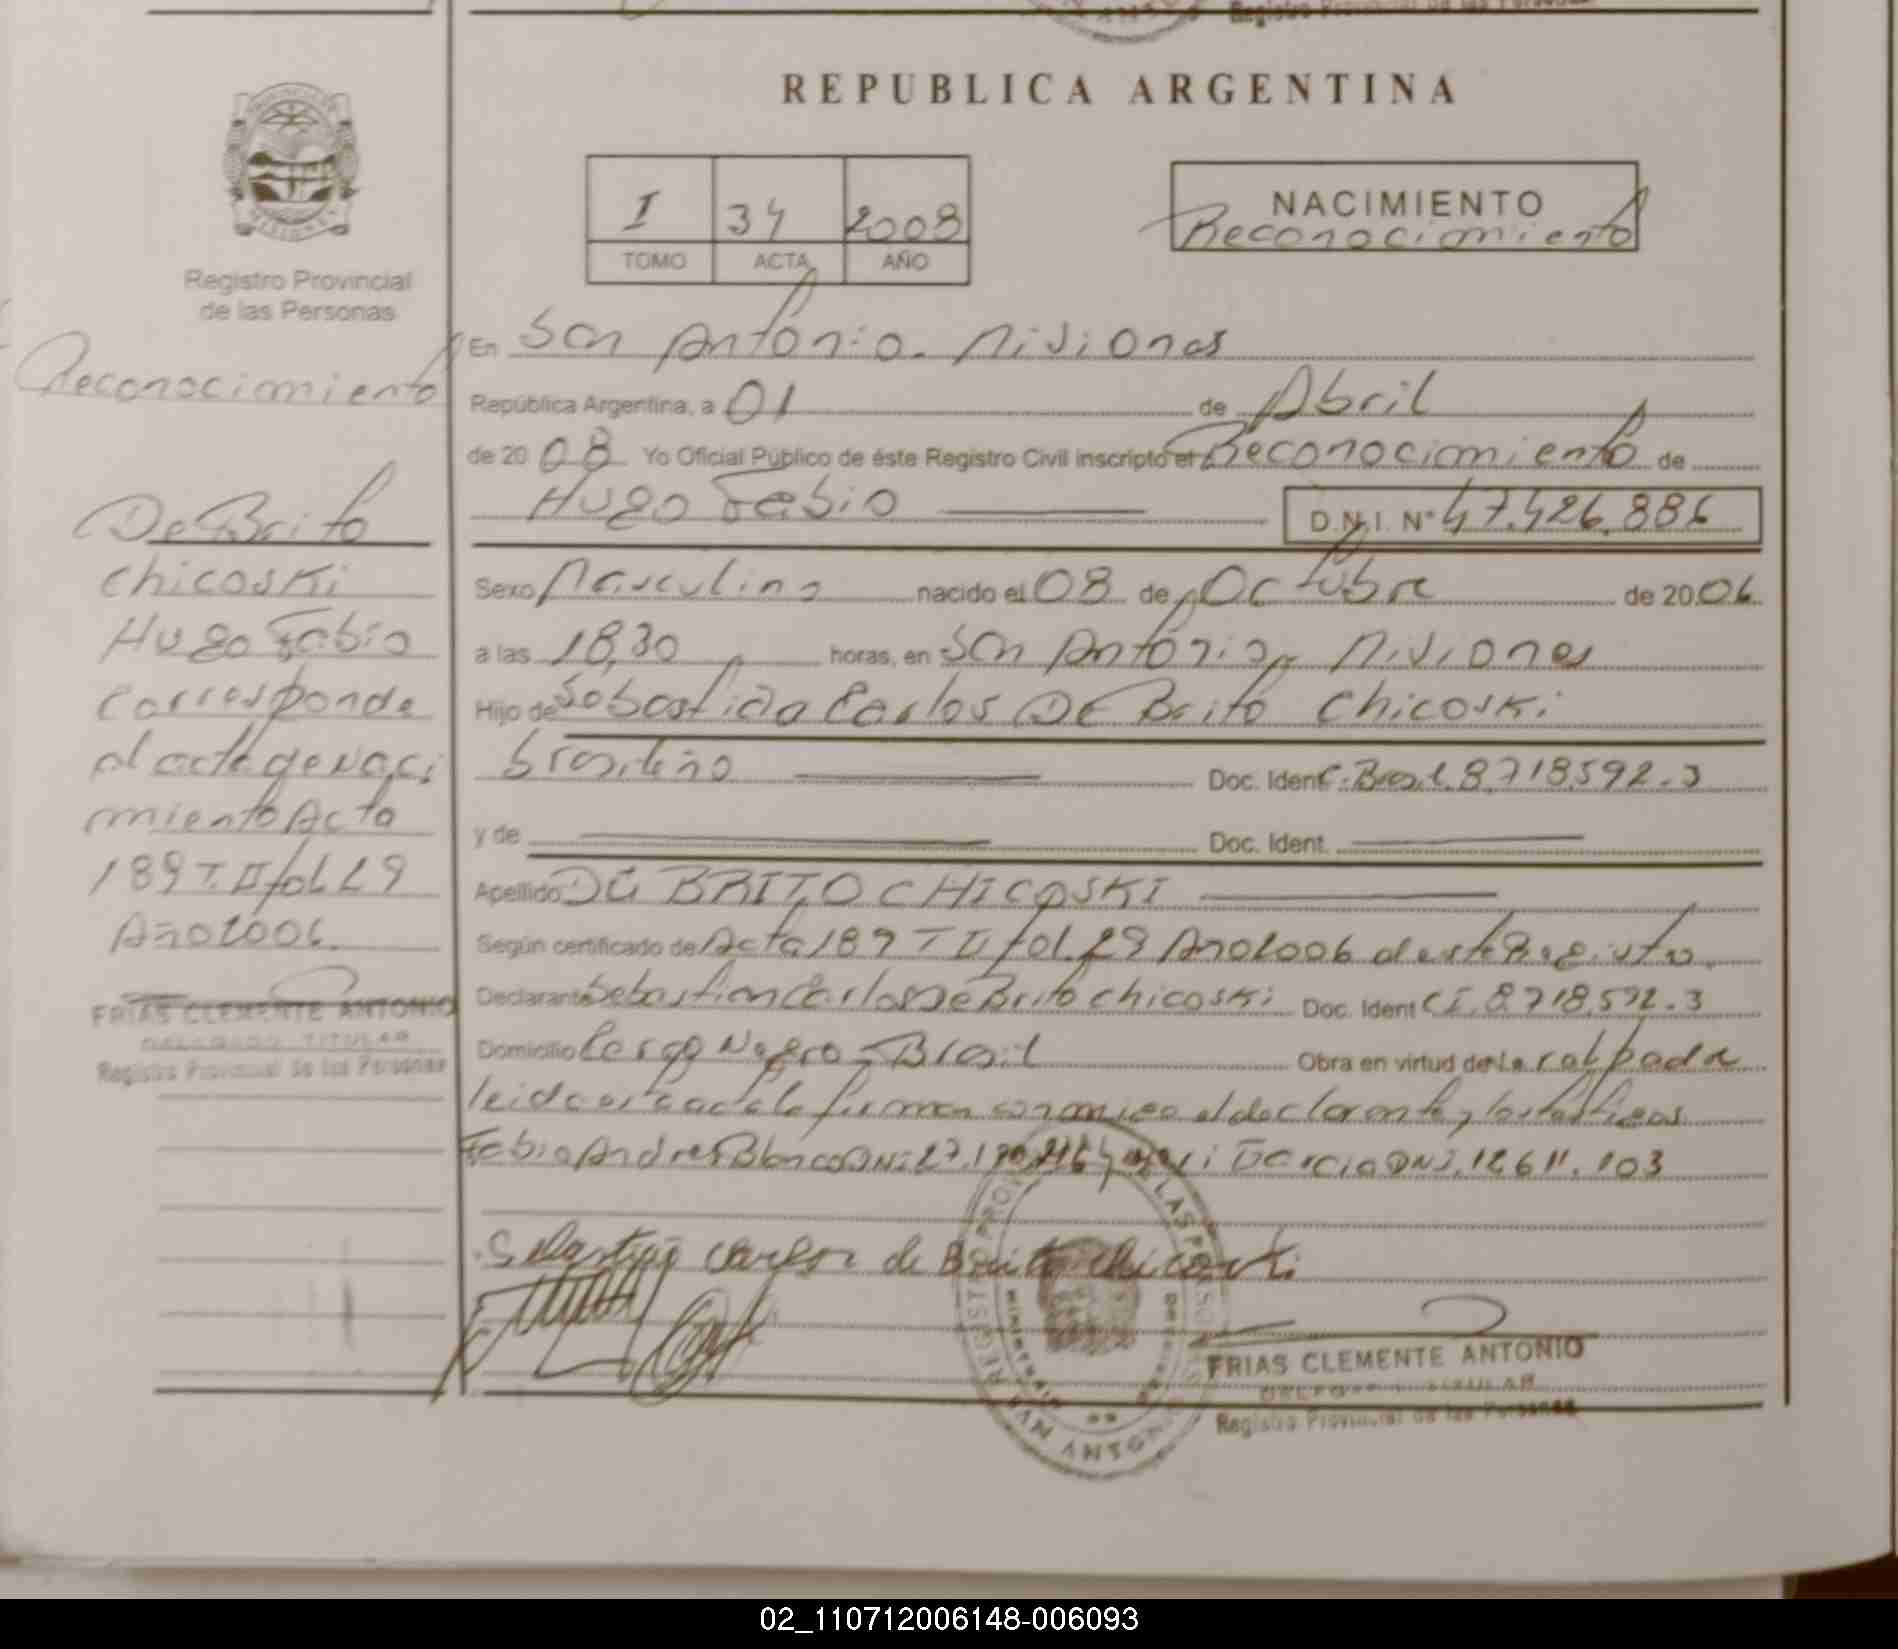 Registro Provincial de las Personas
REPUBLICA ARGENTINA
PROVINCIA DE
MISIONES
Registro Provincial
de las Personas
I 34 2008
TOMO ACTA AÑO
NACIMIENTO
Reconocimiento
Reconocimiento
De Brito
Chicoski
Hugo Fabio
Corresponde
al acta de Naci
miento Acta
189 T. II fol 29
Año 2006.
FRIAS CLEMENTE ANTONIO
DELEGADO TITULAR
Registro Provincial de las Personas
En San Antonio. Misiones
República Argentina, a 01 de Abril
de 20 08 Yo Oficial Público de éste Registro Civil inscripto el Reconocimiento de
Hugo Fabio D.N.I. N° 47.426.886
Sexo Masculino nacido el 08 de Octubre de 20 06
a las 18,30 horas, en San Antonio, Misiones
Hijo de Sebastião Carlos De Brito Chicoski
brasileño Doc. Ident C. Brasil. 8.718.592-3
y de Doc. Ident.
Apellido DE BRITO CHICOSKI
Según certificado de Acta 189 T II fol. 29 Año 2006 de este Registro.
Declarante Sebastian Carlos De Brito Chicoski Doc. Ident CI. 8.718.592-3
Domicilio Cerro Negro - Brasil Obra en virtud de La
leida esta acta la firman conmigo el declarante y los testigos
Fabio Andres Blanco DNI 27. Garcia DNI. 12.611.103
Sebastião Carlos de Brito Chicoski
FRIAS CLEMENTE ANTONIO
DELEGADO TITULAR
Registro Provincial de las Personas
02_110712006148-006093